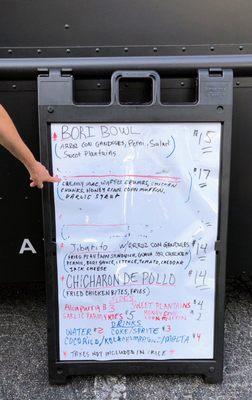 BORI BOWL $15
(ARROZ CON GANDULES, Pernil, Salad
Sweet Plantains)
$17
(CREAMY MAC, WAFFLE CRUMBS, CHICKEN
CHUNKS, HONEY BUNN CORN MUFFIN,
GARLIC SYRUP
Jibarito W/ARROZ CON GANDULES $14
(FRIED PLANTAIN SANDWICH, CHICKEN
PERNIL, BORI SAUCE, LETTUCE, TOMATO, CHEDDAR
JACK CHEESE
CHICHARON DE POLLO $14
(FRIED CHICKEN BITES, FRIES)
SIDES
Alcapurria $3 SWEET PLANTAINS $4
GARLIC PARM FRIES $5 HONEY BUNN CORN MUFFIN $2
DRINKS
WATER $2 COKE/SPRITE $3
COCO RICO/KOLA CHAMPAGNE/MALTA $4
* TAXES NOT INCLUDED IN PRICE *
A